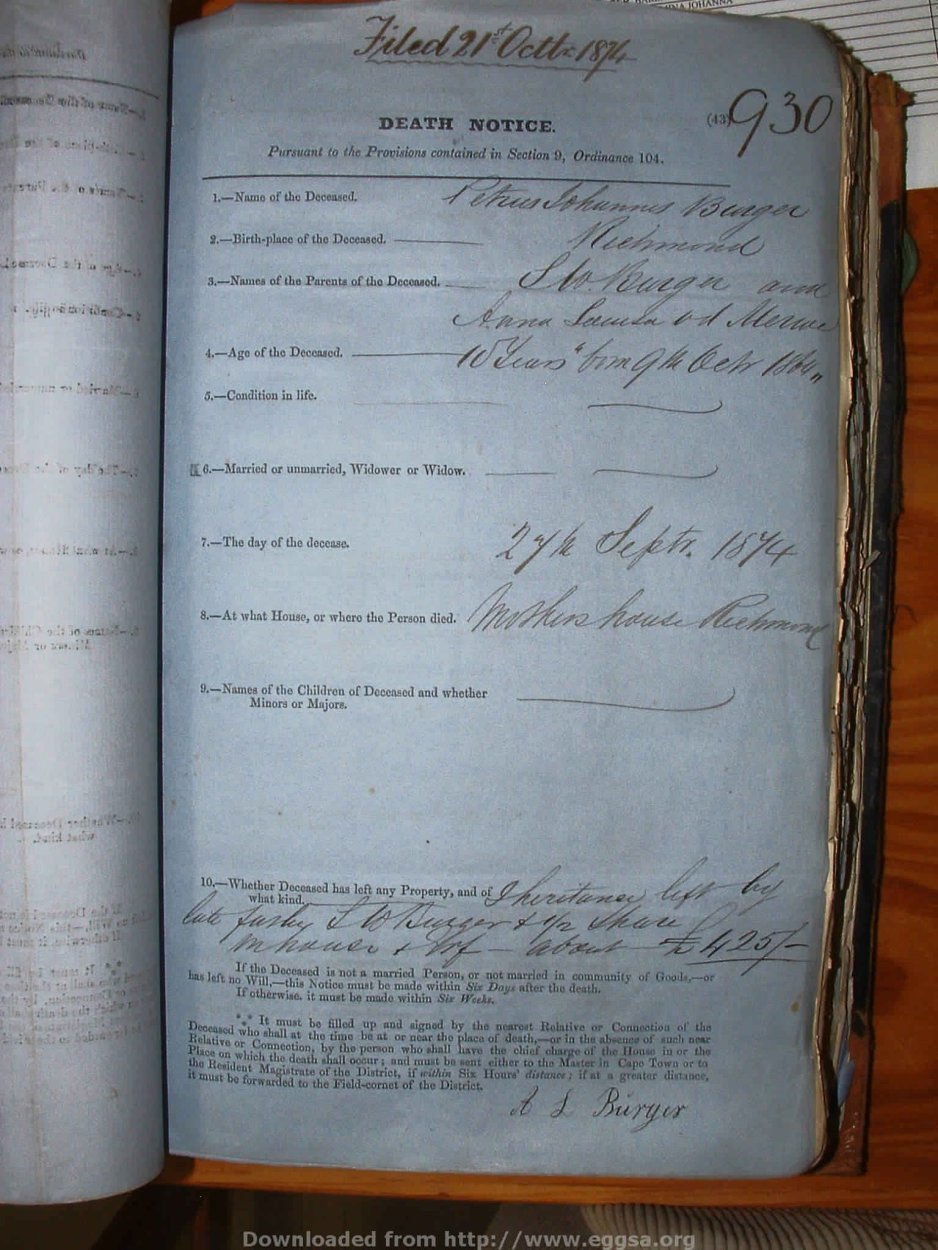 Filed 21st Octbr 1874
(43) 930
DEATH NOTICE.
Pursuant to the Provisions contained in Section 9, Ordinance 104.
1.—Name of the Deceased. Petrus Johannes Burger
2.—Birth-place of the Deceased. Richmond
3.—Names of the Parents of the Deceased. Burger and
Anna Louisa vd Merwe
4.—Age of the Deceased. 10 Years "born 9th Octr
5.—Condition in life.
6.—Married or unmarried, Widower or Widow.
7.—The day of the decease. 27th Septr. 1874
8.—At what House, or where the Person died. Mothers house Richmond
9.—Names of the Children of Deceased and whether
Minors or Majors.
10.—Whether Deceased has left any Property, and of
what kind. Inheritance left by
late Burger & 1/2 Share
in house & Erf — about £425/-
If the Deceased is not a married Person, or not married in community of Goods,—or
has left no Will,—this Notice must be made within Six Days after the death.
If otherwise, it must be made within Six Weeks.
*** It must be filled up and signed by the nearest Relative or Connection of the
Deceased who shall at the time be at or near the place of death,—or in the absence of such near
Relative or Connection, by the person who shall have the chief charge of the House in or the
Place on which the death shall occur; and must be sent either to the Master in Cape Town or to
the Resident Magistrate of the District, if within Six Hours' distance; if at a greater distance,
it must be forwarded to the Field-cornet of the District.
A L Burger
Downloaded from http://www.eggsa.org